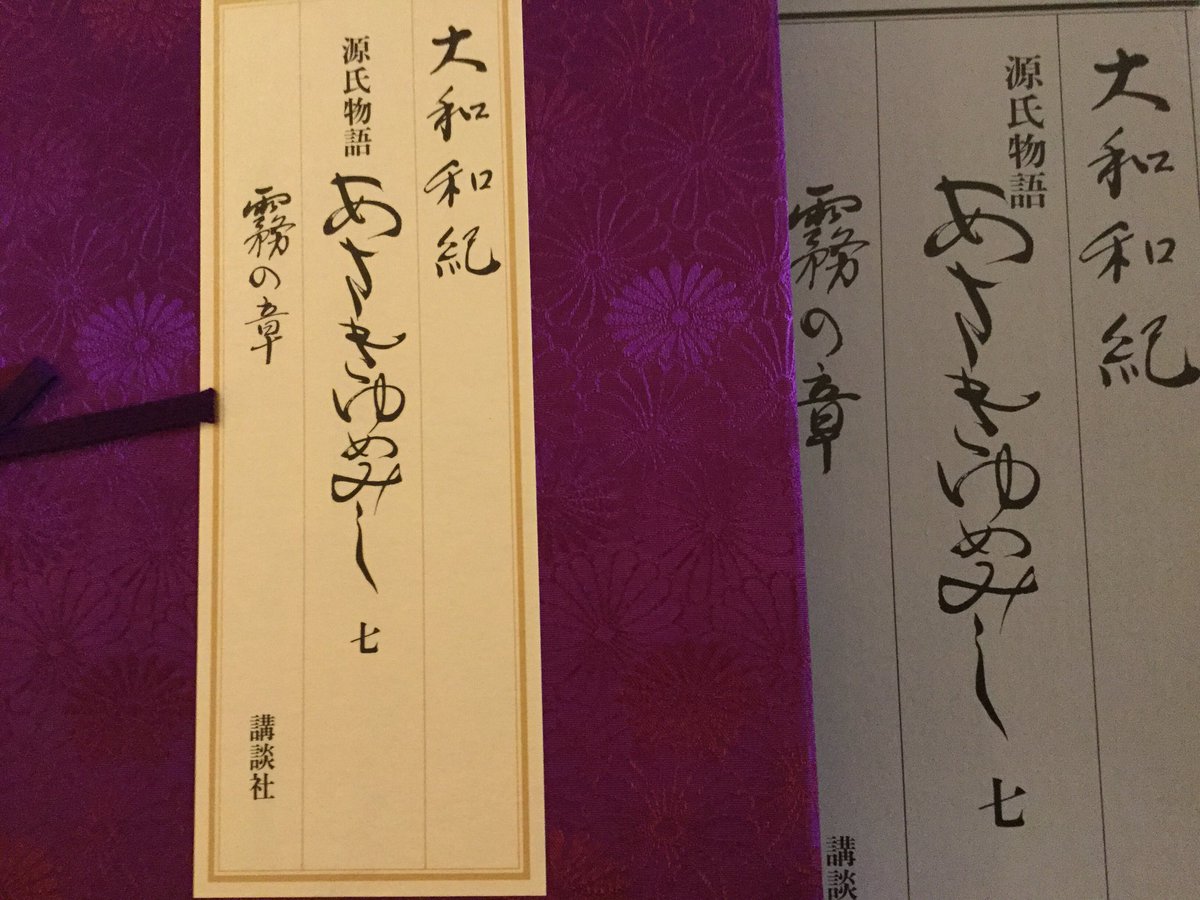 大和和紀
源氏物語
あさきゆめみし 七
霧の章
講談社
大和和紀
源氏物語
あさきゆめみし 七
霧の章
講談